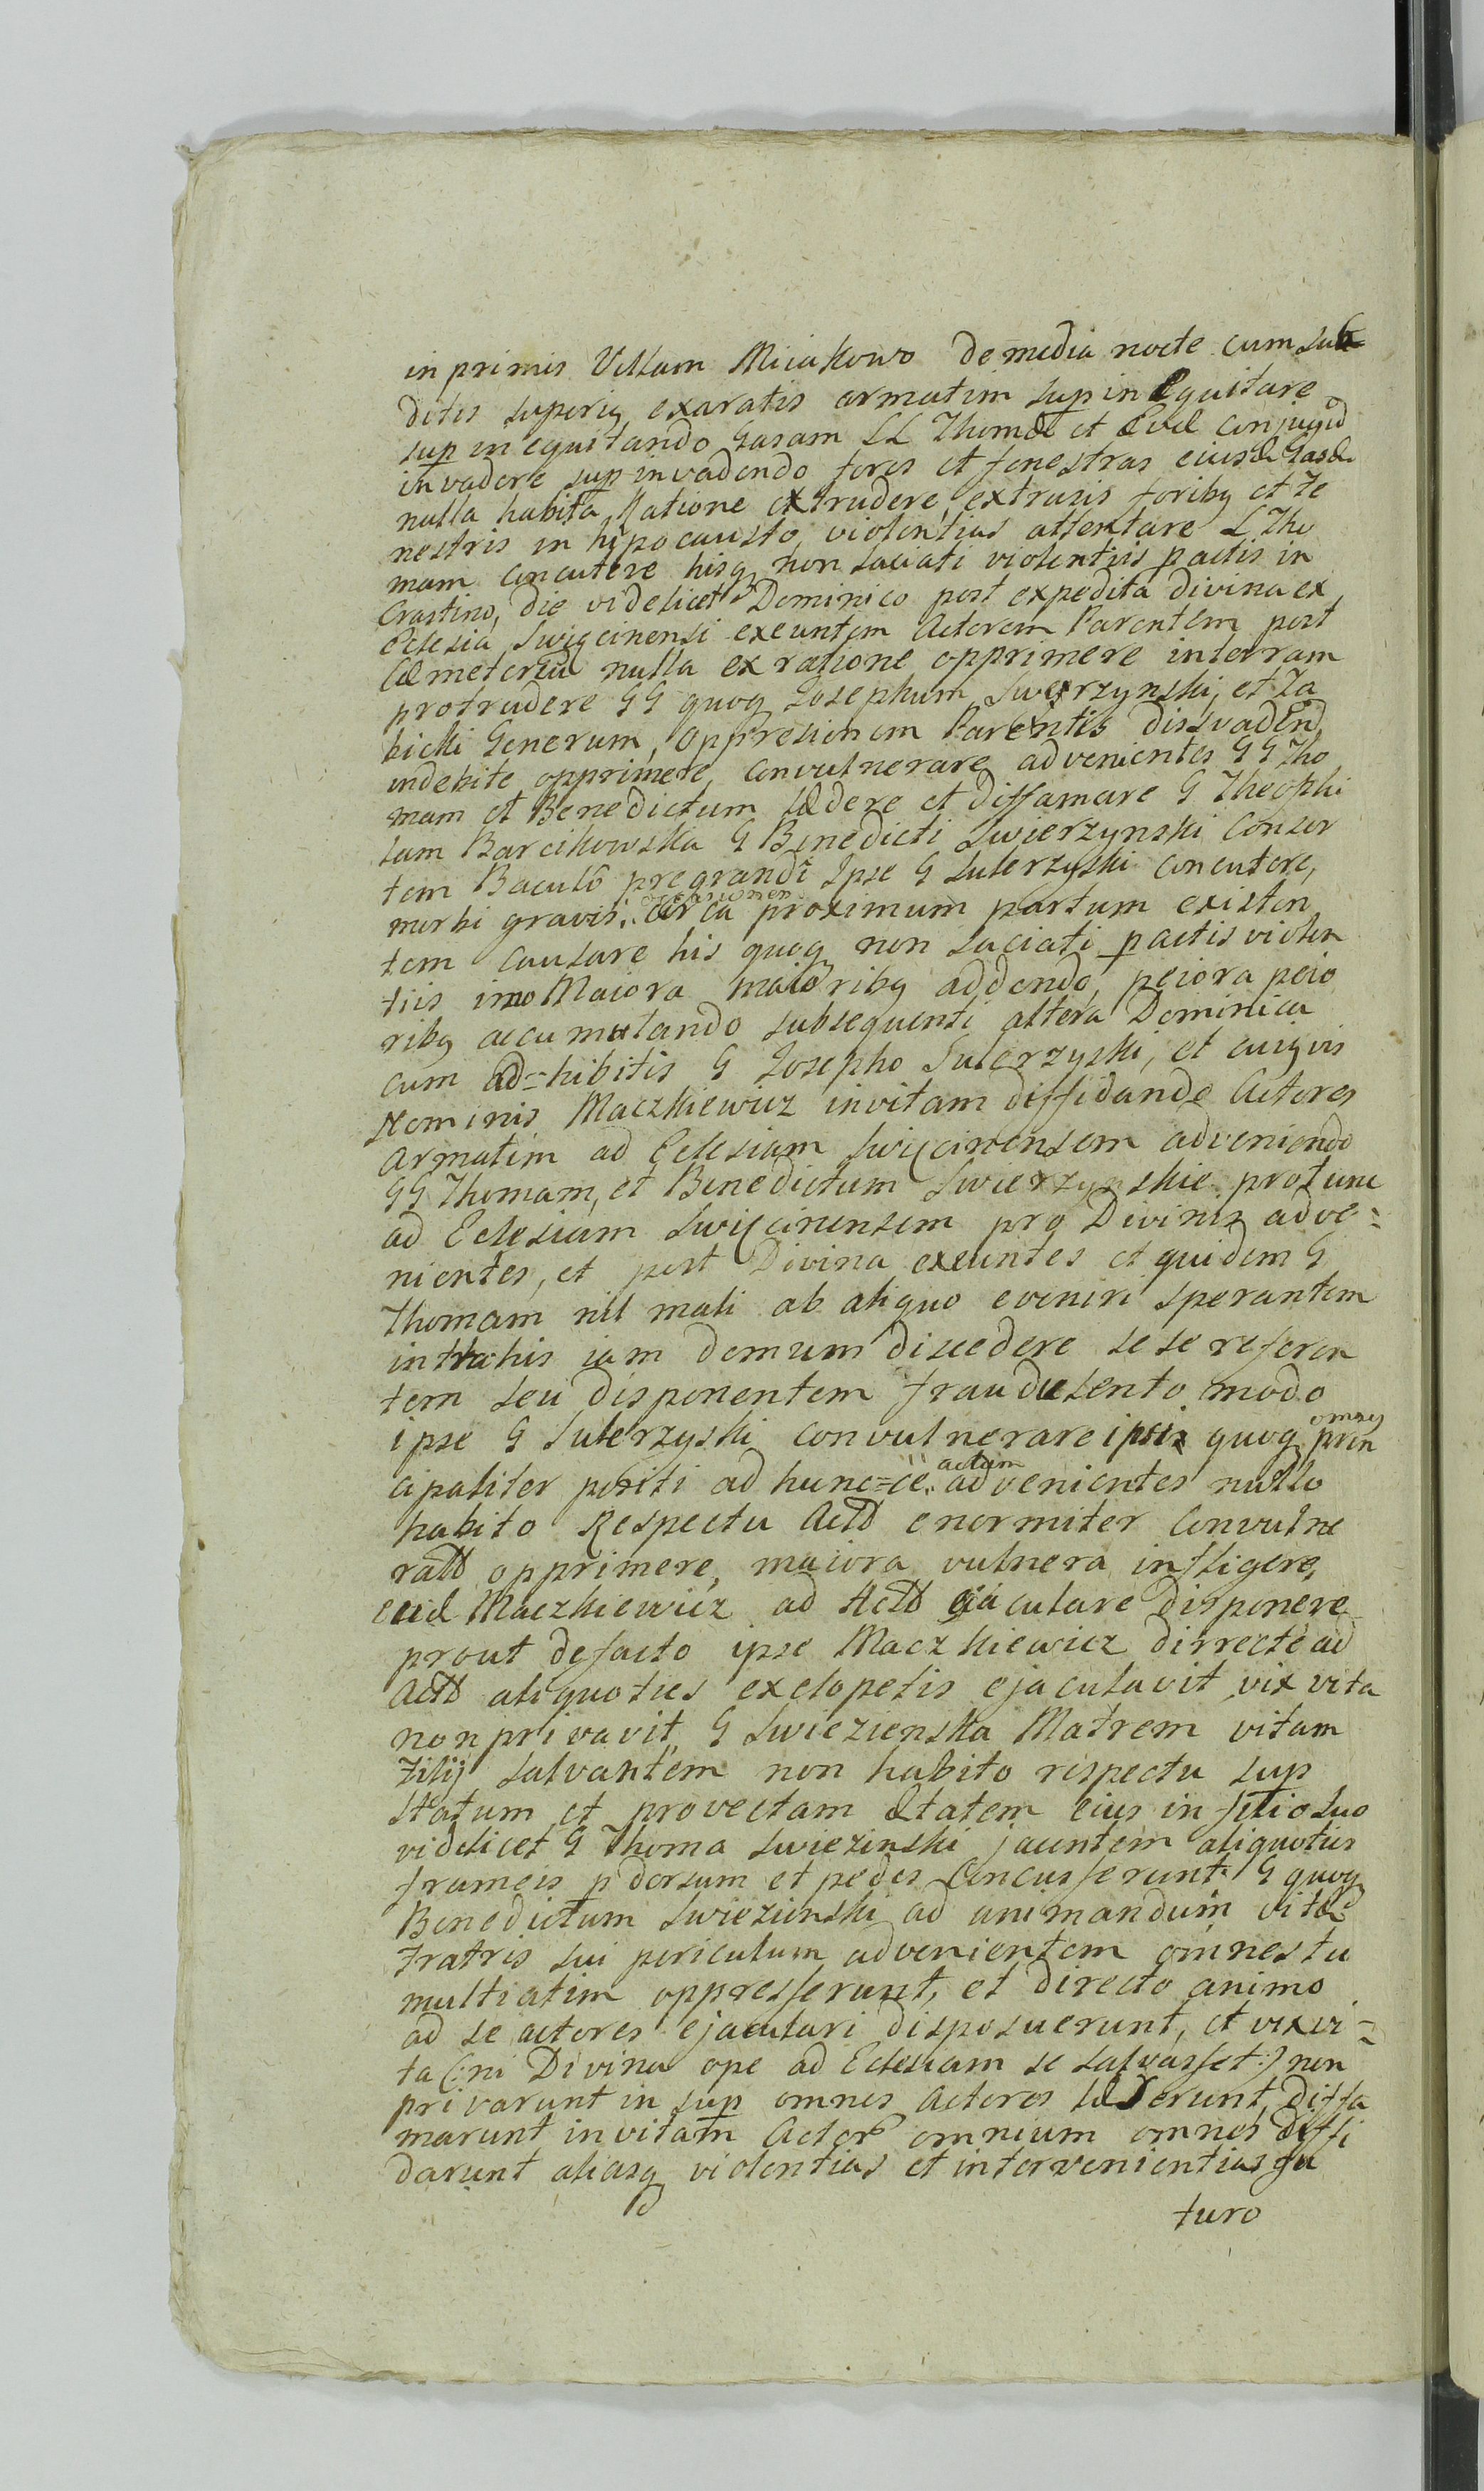 in primis Villam Miiakowo de media nocte cum sub
ditis superiq exaratis armatim sup in Equitare
sup in equitando Gasam LL Thomæ et Evæ Conjugū
invadere sup invadendo fores et fenestras eiusdē Gasæ
nulla habita Ratione extrudere, extrusis foribq et Fe
nestris in hÿpocausto violentias attentare L Tho
mam concutere hisq non saciati violentiis pactis in
Crastino, die videlicet Dominico post expedita divina ex
Eclesia Swięcinensi exeuntem Actorem Parentem post
Cæmeteriū nulla ex ratione opprimere in terram
protrudere GG quoq Josephum Swierzynski, et Za
bicki Generum, oppresionem Parentis dissvadend
indebite opprimere, convulnerare advenientes GG Tho
mam et Benedictum lædere et diffamare G Theophi
lam Barcikowska G Benedicti Swierzynski Consor
tem Baculo pregrandi Ipse G Sulerzyski concutere,
occasionem
morbi gravis circa proximum partum existen
tem causare his quoq non saciati pactis violen
tiis imo Maiora maioribq addendo, peiora peio
ribq accumulando subsequenti altera Dominica
cum ad=hibitis G Josepho Sulerzyski, et cuiqvis
Nominis Maczkiewicz in vitam diffidande Actores
armatim ad Eclesiam Swięcinensem adveniendo
GG Thomam, et Benedictum Swierzynskie protunc
ad Eclesiam Swięcinensem pro Divinis adve=
nientes, et post Divina exeuntes et quidem G
Thomam nil mali ab aliquo eveniri sperantem
in his iam domum discedere se se referen
tem seu disponentem fraudulento modo
omnes
ipse G Sulerzyski convulnerare ipsis quoq prin
actum
cipaliter positi ad hunc=ce advenientes nullo
habito Respectu Actō enormiter Convulne
ratō opprimere, maiora vulnera infligere,
Maczkiewicz ad Actō ejaculare Disponere
prout defacto ipse Maczkiewicz dirrecte ad
Actō aliquoties exclopetis ejaculavit vix vita
non privavit G Swiezienska Matrem vitam
Filij salvantem non habito respectu sup
Statum et provectam ætatem eius in filio suo
videlicet G Thoma Swiezinski jacentem aliquoties
frameis p dorsum et pedes Concusserunt G quoq
Benedictum Swiezienski ad animandum vitæ
Fratris sui periculum advenientem omnes tu
multiatim oppresserunt, et directo animo
ad se actores ejaculari disposuerunt, et vix vi=
ta (: ni Divina ope ad Eclesiam se salvasset :) non
privarunt in sup omnes Actores læserunt, diffa
marunt in vitam Actor omnium omnes diffi
darunt aliasq violentias et intervenientias fu
turo